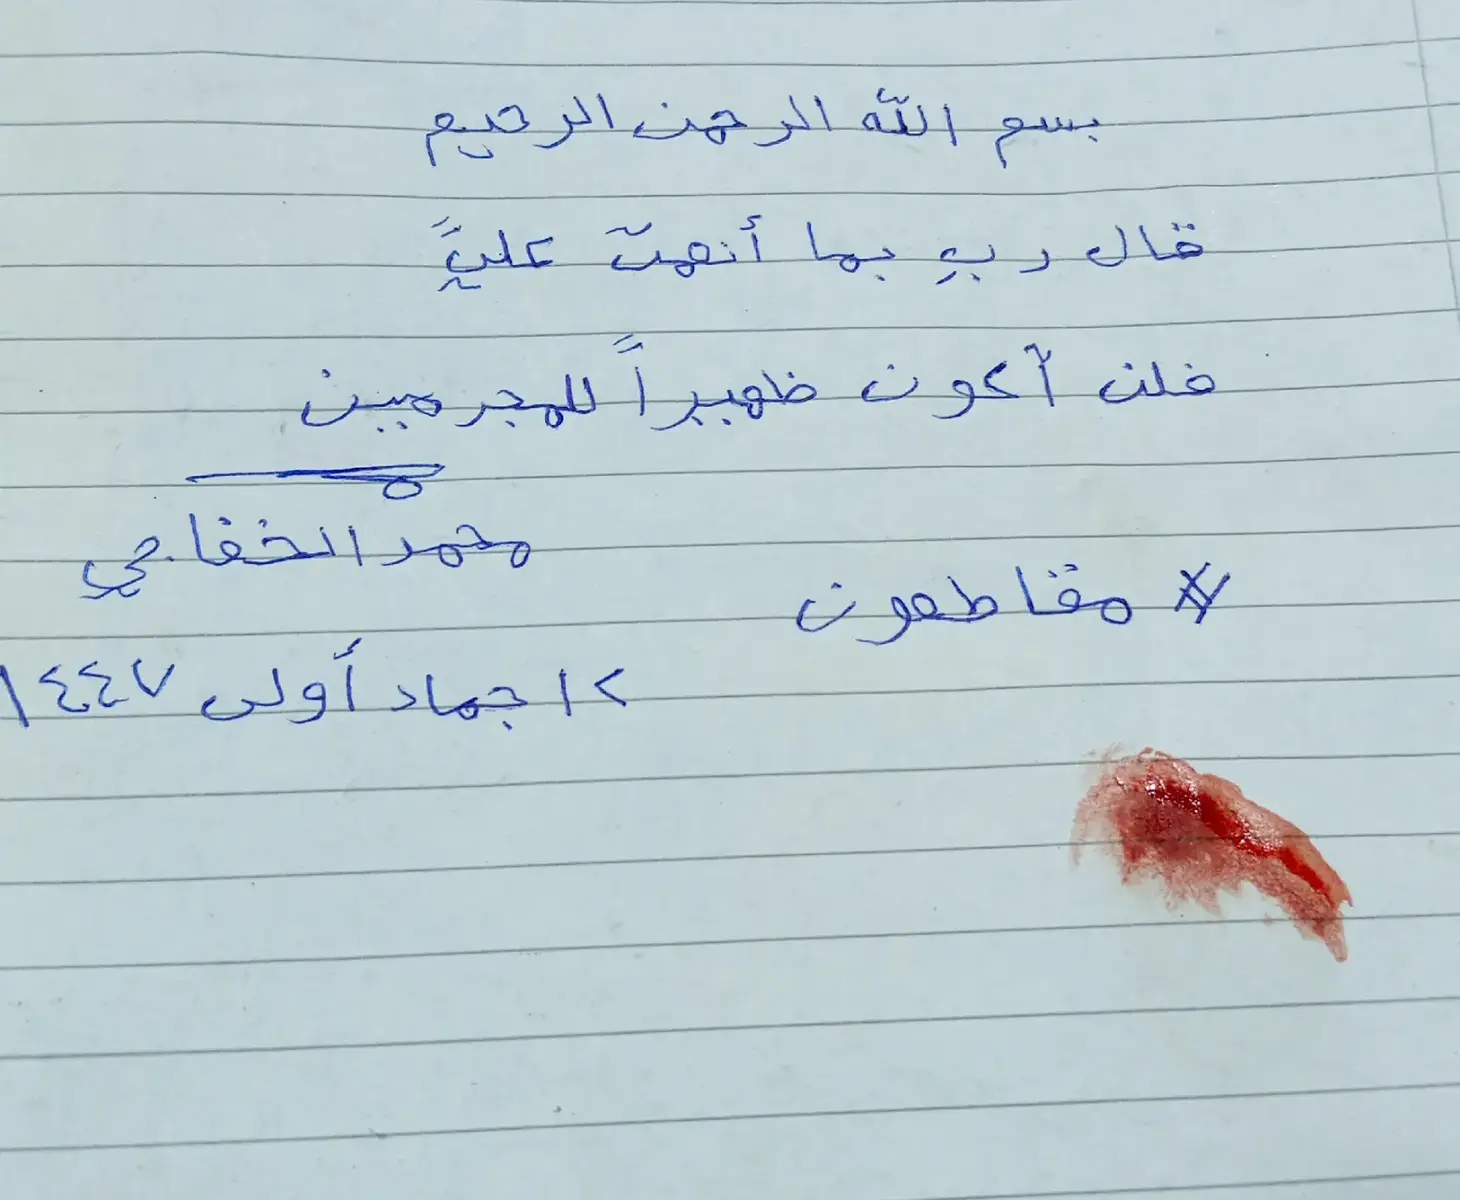 بسم الله الرحمن الرحيم
قال ربِ بما أنعمتَ عليَّ
فلن أكون ظهيراً للمجرمين
محمد الخفاجي
# مقاطعون
١٢ جماد أولى ١٤٤٧